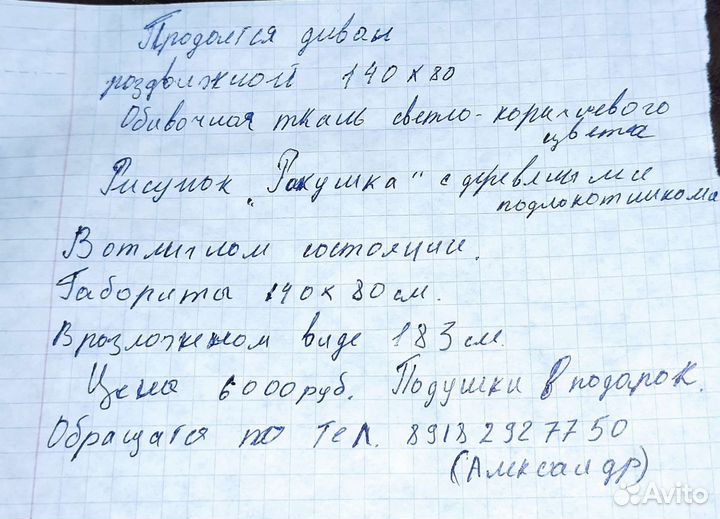 Продается диван
роздвижной 140 х 80
Обивочная ткань светло-коричневого
цвета
Рисунок „Ракушка" с деревяными
подлокотникома
В отличном состоянии.
Габориты 140 х 80 см.
В розложеном виде 183 см.
Цена 6000 руб. Подушки в подарок.
Обращатся по тел. 89182927750
(Александр)
Avito